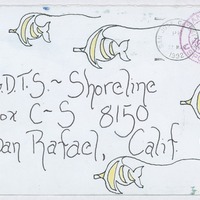 .D.T.S. ~ Shoreline
ox C~S 8150
an Rafael, Calif.